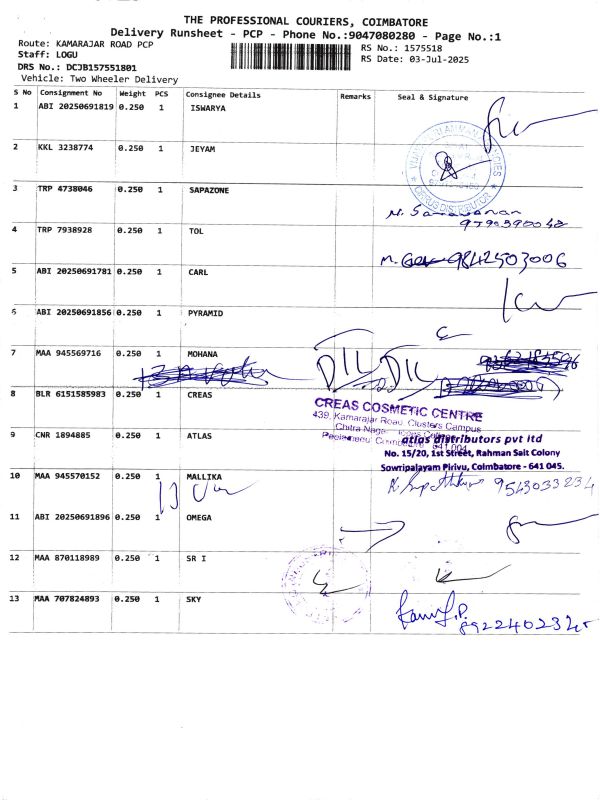 THE PROFESSIONAL COURIERS, COIMBATORE
Delivery Runsheet - PCP - Phone No.:9047080280 - Page No.:1
Route: KAMARAJAR ROAD PCP
Staff: LOGU
DRS No.: DCJB157551801
Vehicle: Two Wheeler Delivery
RS No.: 1575518
RS Date: 03-Jul-2025
S No Consignment No Weight PCS Consignee Details Remarks Seal & Signature
1 ABI 20250691819 0.250 1 ISWARYA
2 KKL 3238774 0.250 1 JEYAM
3 TRP 4738046 0.250 1 SAPAZONE
N. Saravanan
4 TRP 7938928 0.250 1 TOL
9842503006
5 ABI 20250691781 0.250 1 CARL
6 ABI 20250691856 0.250 1 PYRAMID
7 MAA 945569716 0.250 1 MOHANA
8 BLR 6151585983 0.250 1 CREAS
CREAS COSMETIC CENTRE
439, Kamarajar Road, Clusters Campus
9 CNR 1894885 0.250 1 ATLAS
atlas distributors pvt ltd
No. 15/20, 1st Street, Rahman Sait Colony
Sowripalayam Pirivu, Coimbatore - 641 045.
10 MAA 945570152 0.250 1 MALLIKA
9543033234
11 ABI 20250691896 0.250 1 OMEGA
12 MAA 870118989 0.250 1 SR I
13 MAA 707824893 0.250 1 SKY